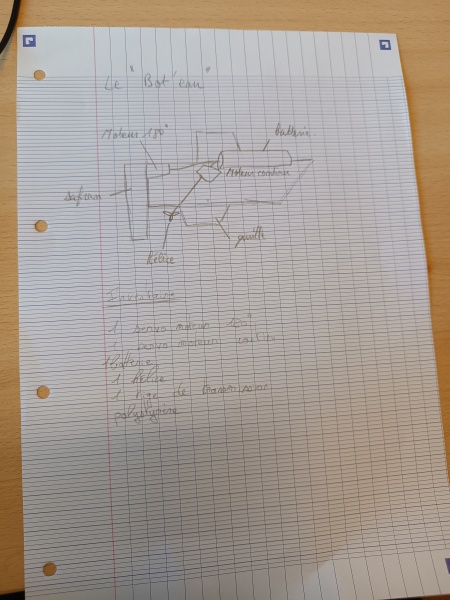 Le "Bot'eau"
Moteur 180°
batterie
Safran
Moteur continu
Hélice
quille
Inventaire
1 servo moteur 180°
1 servo moteur continu
1 batterie
1 hélice
1 tige de transmission
polystyrène